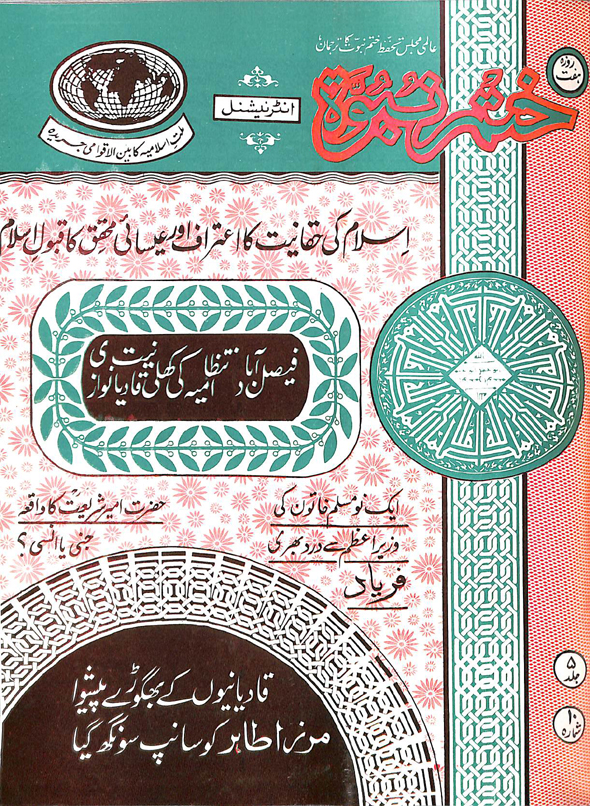 عالمی مجلس تحفظ ختم نبوت کا ترجمان
ہفت روزہ
ختم نبوۃ
انٹرنیشنل
ملت اسلامیہ کا بین الاقوامی جریدہ
اسلام کی حقانیت کا اعتراف اور عیسائی محقق کا قبول اسلام
فیصل آباد انتظامیہ کی کھلی قادیانیت نوازی
ایک نو مسلم خاتون کی
وزیر اعظم سے درد بھری
فریاد
حضرت امیر شریعتؒ کا واقعہ
جنی یا انسی؟
قادیانیوں کے بھگوڑے پیشوا
مرزا طاہر کو سانپ سونگھ گیا
جلد ۵
شمارہ ۱۰